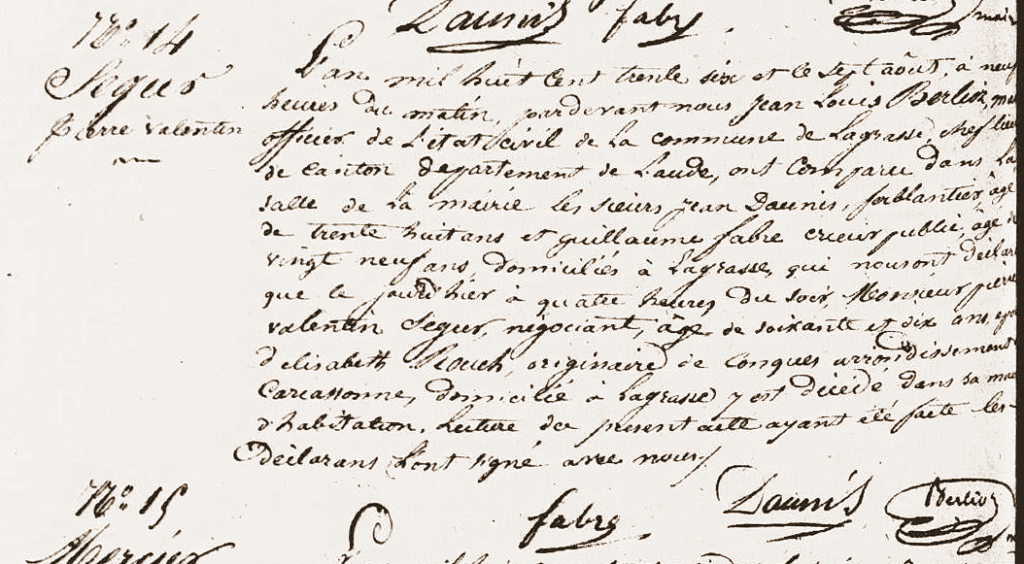 Daunis fabre
N.o 14
Segur
pierre valentin
L'an mil huit cent trente six et le sept août, à neuf
heures du matin, pardevant nous jean Louis Berlioz,
officier de L'état civil de la commune de Lagrasse, chef lieu
de canton département de Laude, ont comparu dans la
salle de la mairie les sieurs jean Daunis, ferblantier âgé
de trente huit ans et guillaume fabre crieur public, âgé de
vingt neuf ans, domiciliés à Lagrasse, qui nous ont déclaré
que le jour d'hier à quatre heures du soir, Monsieur pierre
valentin Segur, négociant, âgé de soixante et dix ans,
d'elisabeth originaire de Conques arrondissement
Carcassonne, domicilié à Lagrasse y est décédé dans sa
d'habitation. Lecture du présent acte ayant été faite les
déclarans L'ont signé avec nous
fabre Daunis Berlioz
N.o 15
Mercier